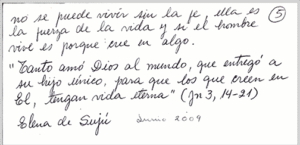 no se puede vivir sin la fe ella es (5)
la fuerza de la vida y si el hombre
vive es porque cree en algo.
"Tanto amó Dios al mundo, que entregó a
su hijo único, para que los que creen en
El, tengan vida eterna" (Jn 3, 14-21)
Elena de Sujú Junio 2009